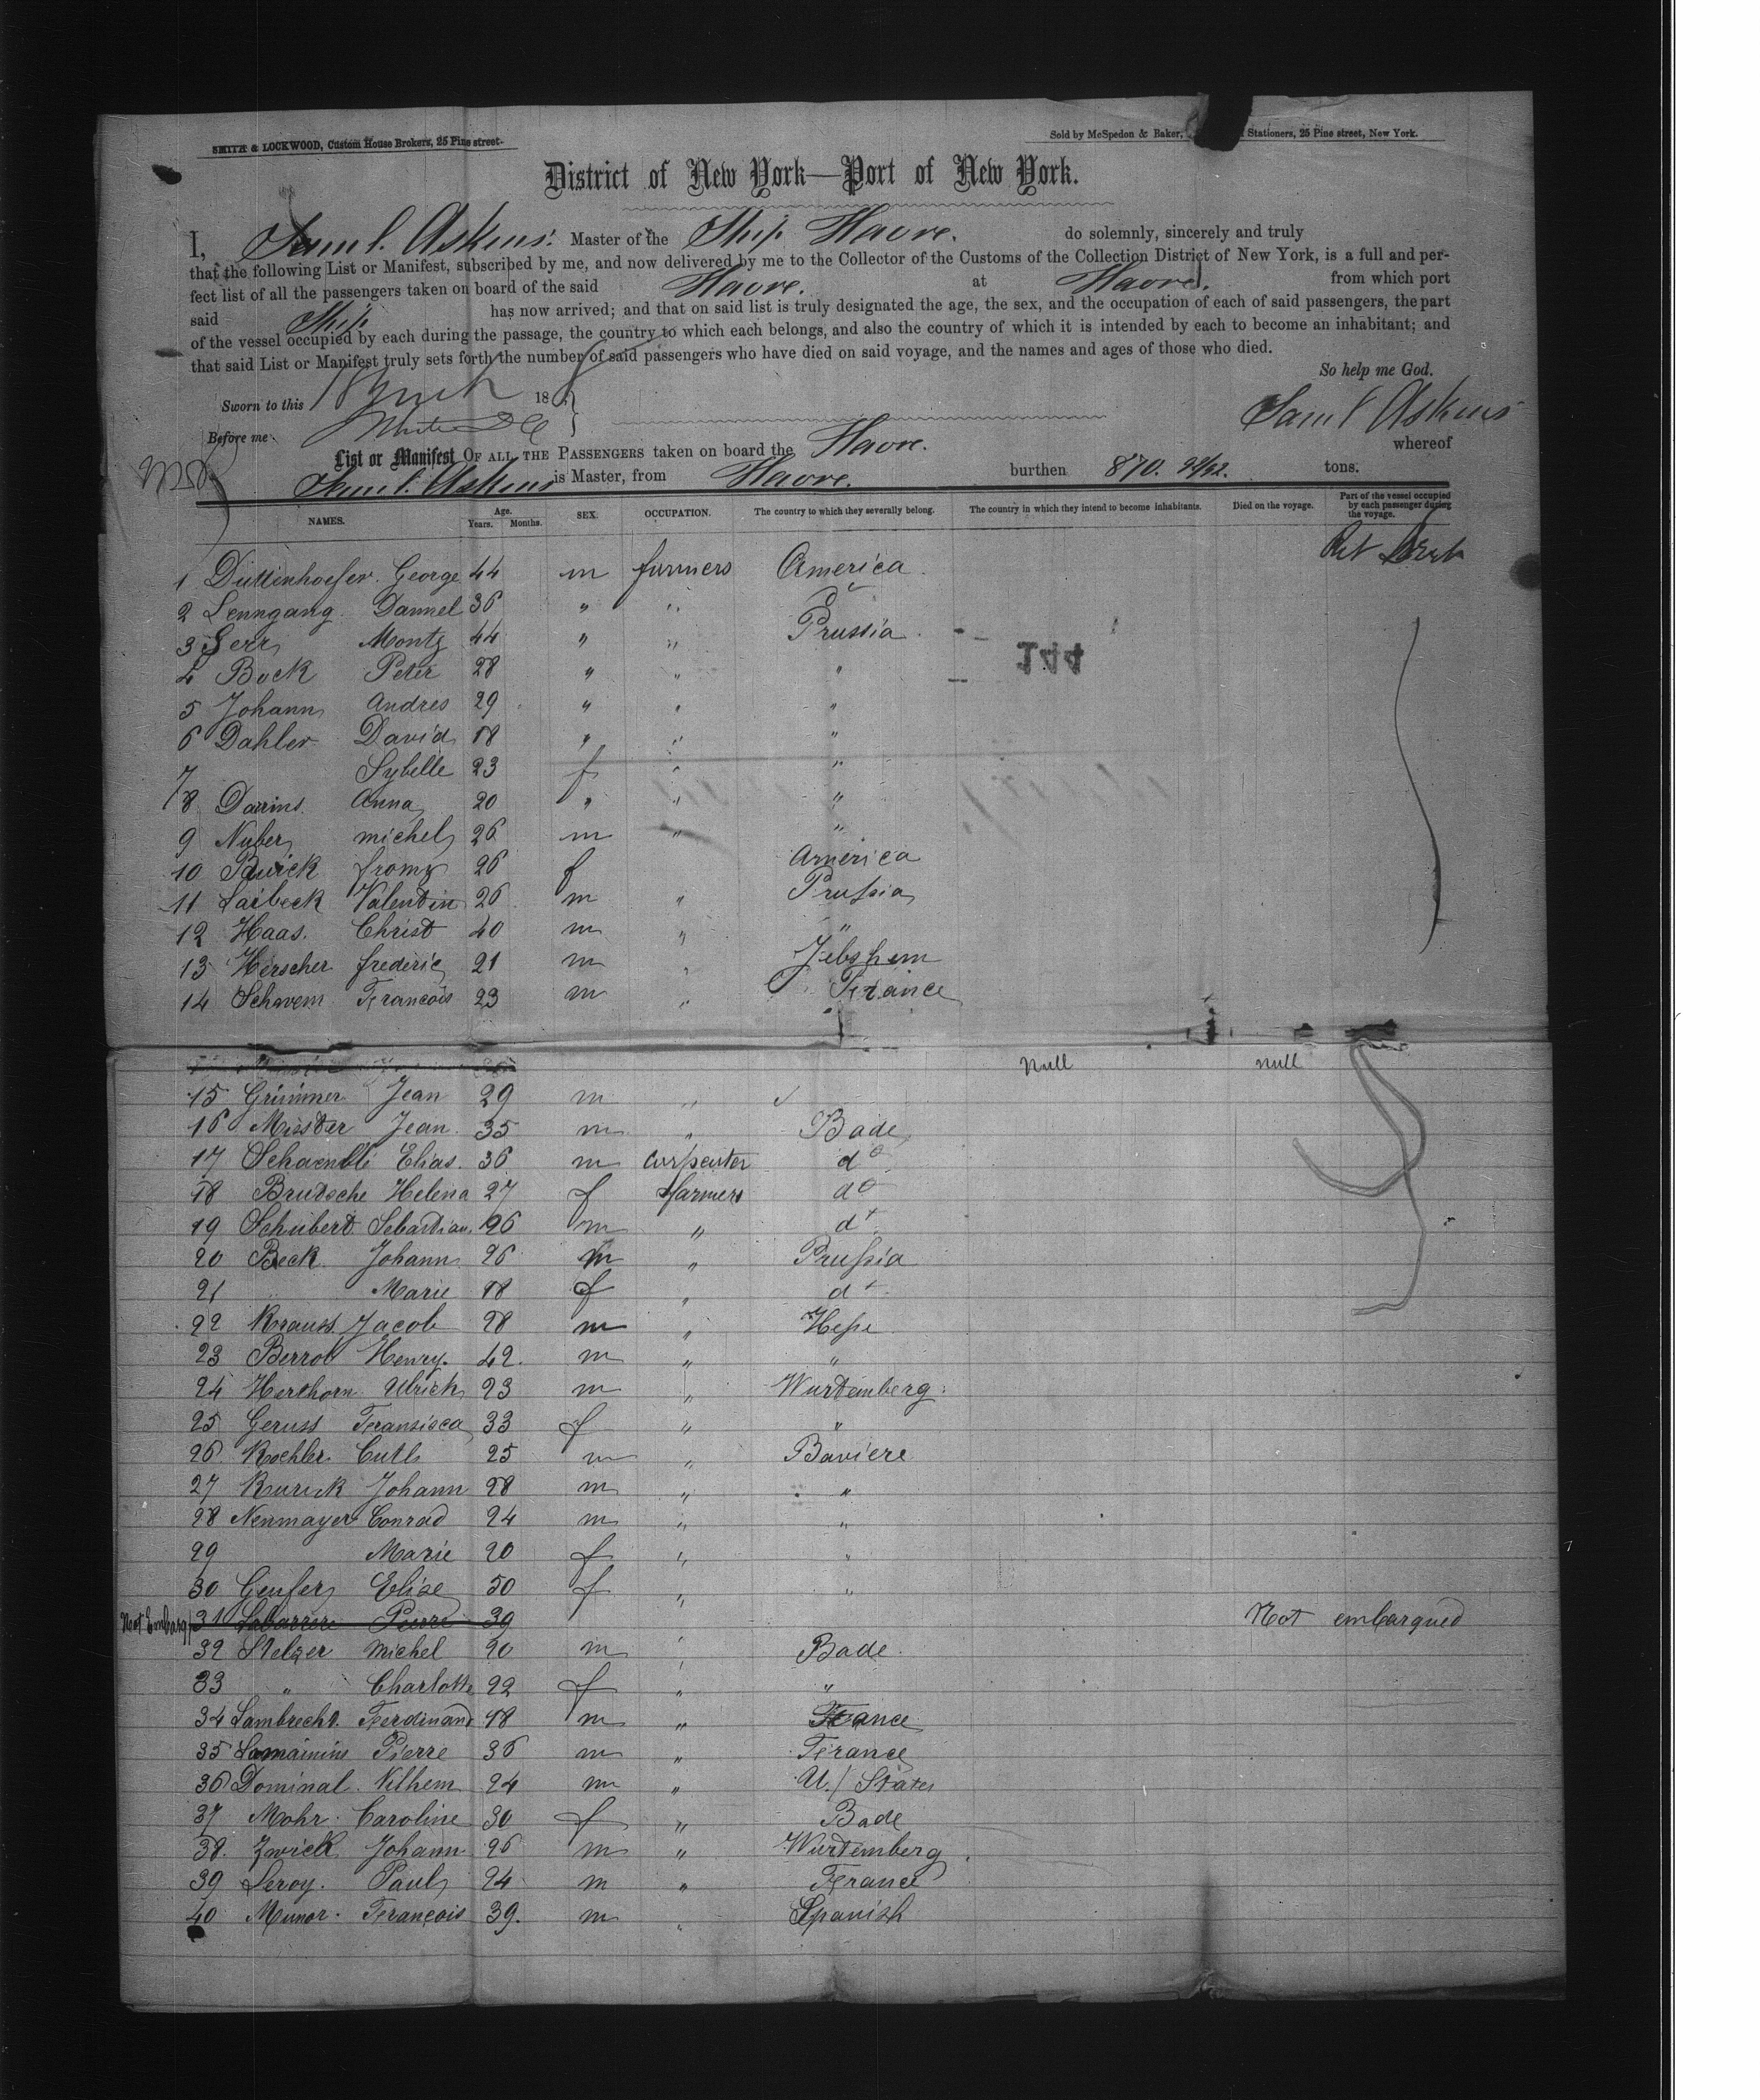 SMITH & LOCKWOOD, Custom House Brokers, 25 Pine street.
Sold by McSpedon & Baker, Stationers, 25 Pine street, New York.
District of New York—Port of New York.
I, Saml. Askins. Master of the Ship Havre. do solemnly, sincerely and truly
that the following List or Manifest, subscribed by me, and now delivered by me to the Collector of the Customs of the Collection District of New York, is a full and per-
fect list of all the passengers taken on board of the said Havre. at Havre. from which port
said Ship has now arrived; and that on said list is truly designated the age, the sex, and the occupation of each of said passengers, the part
of the vessel occupied by each during the passage, the country to which each belongs, and also the country of which it is intended by each to become an inhabitant; and
that said List or Manifest truly sets forth the number of said passengers who have died on said voyage, and the names and ages of those who died.
So help me God.
Sworn to this 18
Saml Askins
Before me
List or Manifest OF ALL THE PASSENGERS taken on board the Havre. whereof
Saml. Askins is Master, from Havre. burthen 870. tons.
NAMES. Age. Years. Months. SEX. OCCUPATION. The country to which they severally belong. The country in which they intend to become inhabitants. Died on the voyage. Part of the vessel occupied by each passenger during the voyage.
1 Duttenhoefer George 44 m farmers America
2 Lenngang Dannel 36 " "
3 Serr Montz 44 " " Prussia
144
4 Bock Peter 28 " " "
5 Johann Andres 29 " " "
6 Dahler David 18 " " "
7 Sybelle 23 f " "
8 Darins Anna 20 " " "
9 Nuber michel 26 m " "
10 fromz 26 f America
11 Laibeck Valentin 26 m " Prussia
12 Haas. Christ 40 m " "
13 Herscher frederic 21 m " Jebshem
14 Schwem Francois 23 m " France
Null null
15 Grimmer Jean 29 m "
16 Mister Jean 35 m " Bade
17 Schaenble Elias. 36 m carpenter do
18 Brutsche Helena 27 f farmers do
19 Schubert Sebastian 26 m " do
20 Beck Johann 26 m " Prussia
21 " Marie 18 f " do
22 Krauss Jacob 28 m " Hesse
23 Berrot Henry. 42. m " "
24 Herthorn Ulrich 23 m " Wurtemberg
25 Geruss Fransisca 33 f " "
26 Koehler Cutts 25 m " Baviere
27 Kurick Johann 28 m " "
28 Nenmayer Conrad 24 m " "
29 Marie 20 f " "
30 Geufer Elise 50 f " "
Not Embarq 31 Labarrere Pierre 39 Not embarqued
32 Stelzer michel 20 m " Bade
33 " Charlotte 22 f " "
34 Lambrecht. Ferdinand 18 m " France
35 Pierre 36 m " France
36 Dominal Vilhem 24 m " U./States
37 Mohr Caroline 30 f " Bade
38. Zwick Johann 26 m " Wurtemberg
39 Leroy. Paul 24 m " France
40 Munor. François 39. m " Spanish